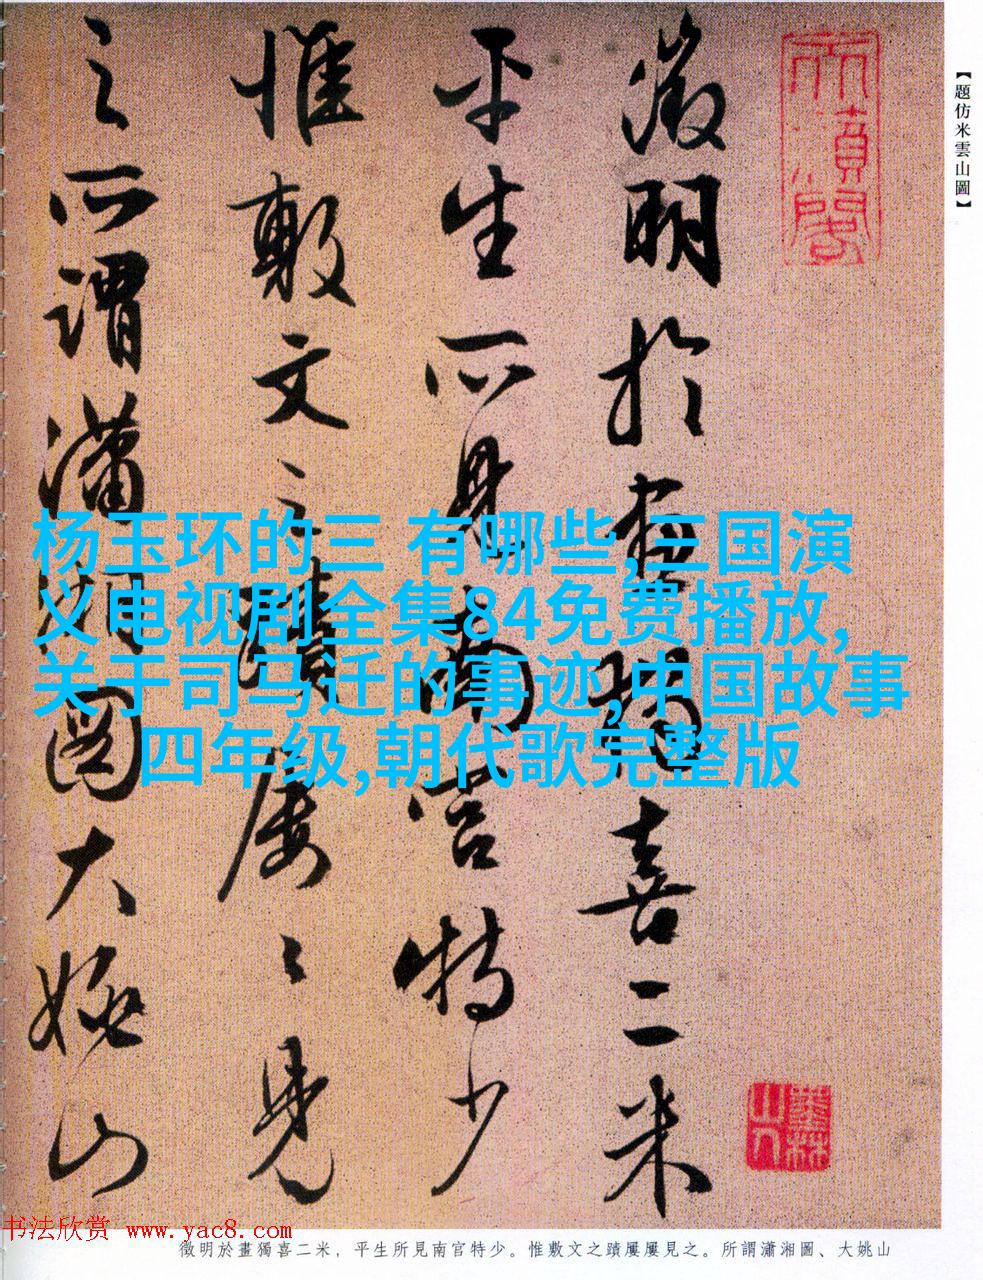 【題仿米雲山圖】
徵明於畫獨喜二米
平生所見南宮特少
惟敷文之蹟屢〻見
之所謂瀟湘圖大姚山
杨玉环的三 有哪些,三国演
义电视剧全集84免费播放,
关于司马迁的事迹,中国故事
四年级,朝代歌完整版
书法欣赏 www.yac8.com
徵明於畫獨喜二米，平生所見南官特少。惟敷文之蹟屢屢見之。所謂瀟湘圖、大姚山